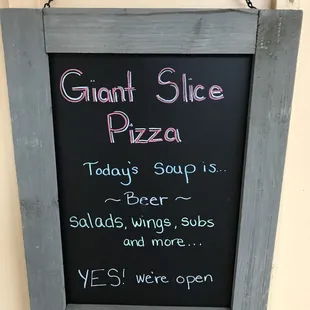 Giant Slice
Pizza
Today's Soup is...
~ Beer ~
Salads, wings, subs
and more...
YES! we're open